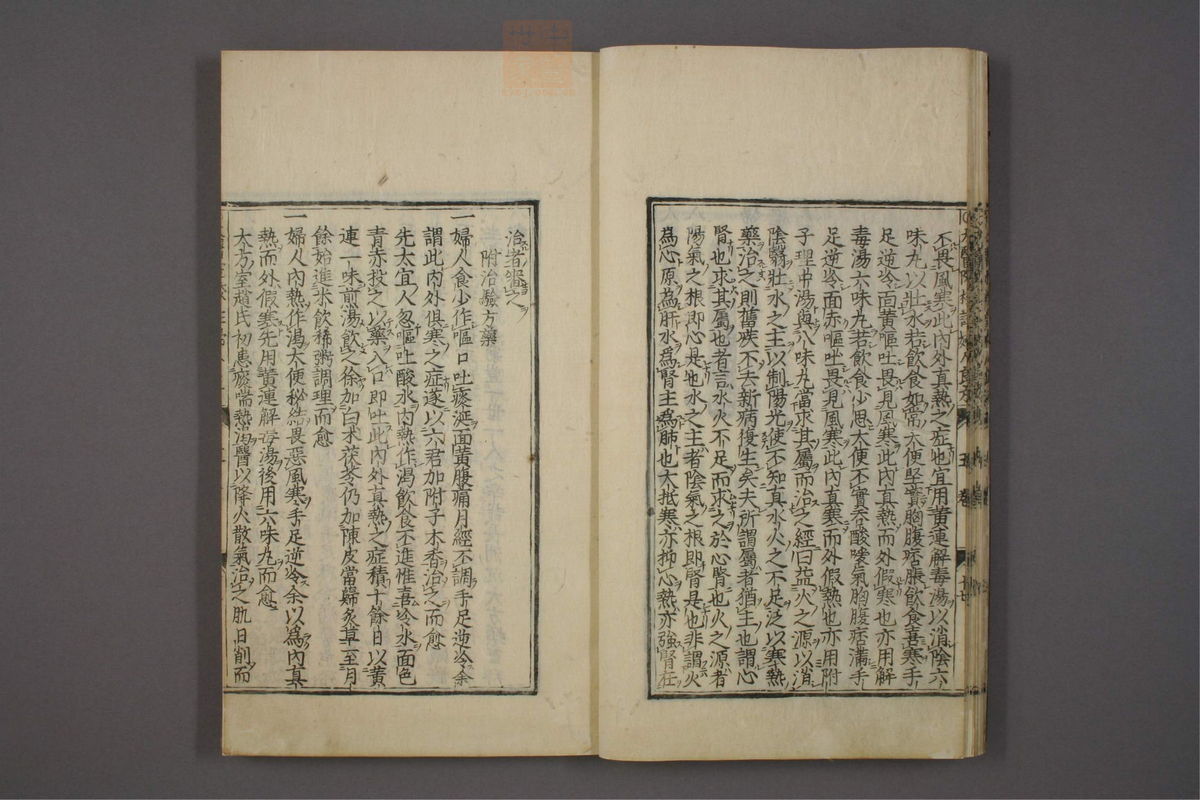 不畏風寒此內外真熱之症也宜用黃連解毒湯以消陰六
味丸以壯水若飲食如常大便堅實胸腹痞脹飲食喜寒手
足逆冷面黃嘔吐畏見風寒此內真熱而外假寒也亦用解
毒湯六味丸若飲食少思大便不實吞酸噯氣胸腹痞滿手
足逆冷面赤嘔吐畏見風寒此內真寒而外假熱也亦用附
子理中湯與八味丸當求其屬而治之經曰益火之源以消
陰翳壯水之主以制陽光使不知真水火之不足泛以寒熱
藥治之則舊疾不去新病復生矣夫所謂屬者猶主也謂心
腎也求其屬也者言水火不足而求之於心腎也火之源者
陽氣之根即心是也水之主者陰氣之根即腎是也非謂火
為心原為肝水為腎主為肺也大抵寒亦抑心熱亦強腎在
治者審之
附治驗方藥
一婦人食少作嘔口吐痰涎面黃腹痛月經不調手足逆冷余
謂此內外俱寒之症遂以六君加附子木香治之而愈
先太宜人忽嘔吐酸水內熱作渴飲食不進惟喜冷水面色
青赤投之以藥入口即吐此內外真熱之症積十餘日以黃
連一味煎湯飲之徐加白朮茯苓仍加陳皮當歸炙草至月
餘始進米飲稀粥調理而愈
一婦人內熱作渴大便秘結畏惡風寒手足逆冷余以為內真
熱而外假寒先用黃連解毒湯後用六味丸而愈
太方室趙氏初患痰喘熱渴醫以降火散氣治之肌日削而